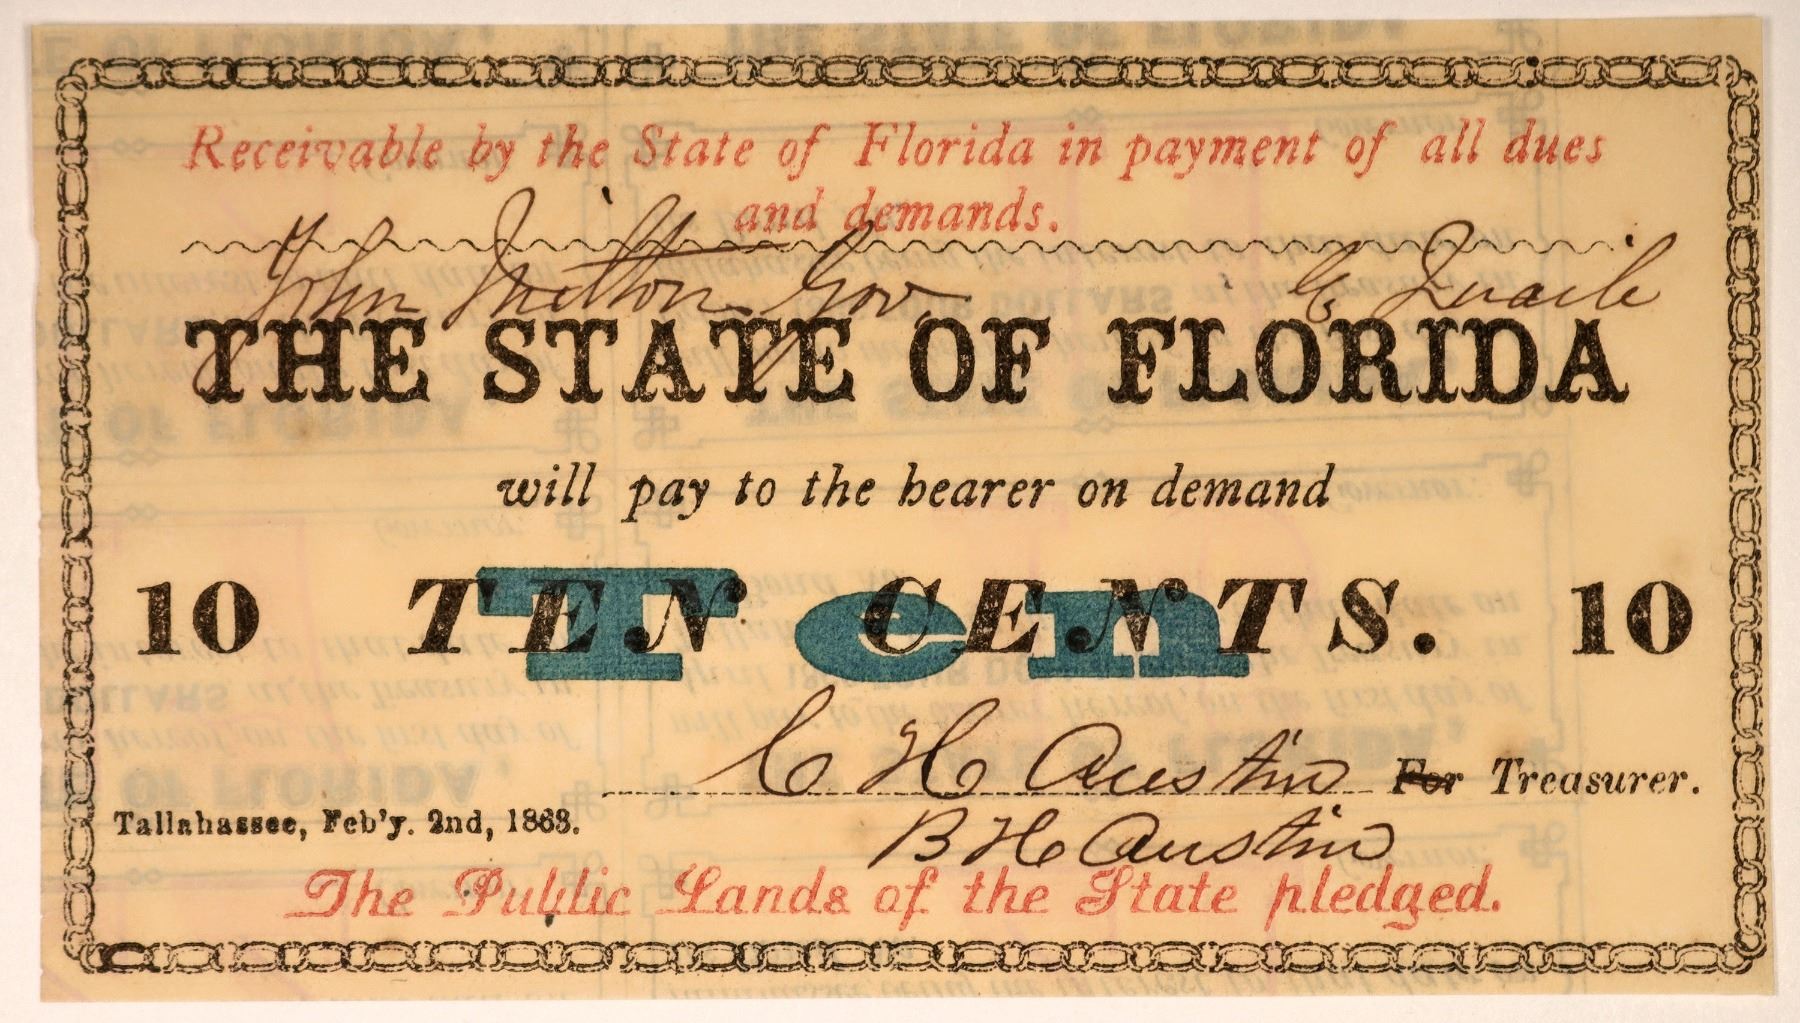 Receivable by the State of Florida in payment of all dues
and demands.
John Milton Gov. C Quaile
THE STATE OF FLORIDA
will pay to the bearer on demand
10 TEN CENTS. 10
Ten
C H Austin For Treasurer.
Tallahassee, Feb'y. 2nd, 1863.
B H Austin
The Public Lands of the State pledged.